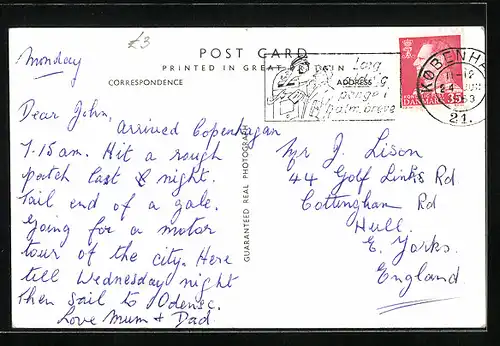 £3
Monday
POST CARD
PRINTED IN GREAT BRITAIN
CORRESPONDENCE
ADDRESS
Dear John,
arrived Copenhagen
7.15am. Hit a rough
patch last night.
Tail end of a gale.
Going for a motor
tour of the city. Here
till Wednesday night
then sail to Odense.
Love Mum & Dad
GUARANTEED REAL PHOTOGRAPH
Læg
aldrig
penge i
alm. breve
KØBENHA
11-12
24
21.
DANMARK 35
Mr J Lison
44 Golf Links Rd
Cottingham Rd
Hull.
E. Yorks.
England